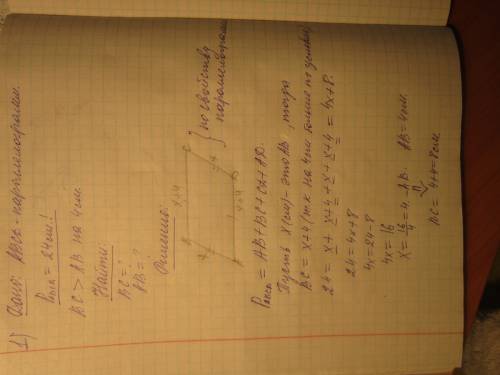 1) Дано: ABCD - параллелограмм.
Pавсд = 24 см.
BC > AB на 4 см.
Найти:
BC = ?
AB = ?
Решение:
x+4
x
x+4
x+4
} по свойству параллелограмма
Pавсд = AB + BC + CD + AD.
Пусть x (см) - это AB, тогда
BC = x+4 (т.к на 4 см больше по условию)
24 = x + x+4 + x + x+4 = 4x+8.
24 = 4x+8
4x = 24-8
4x = 16
x = 16/4 = 4. AB. AB = 4 см.
BC = 4+4 = 8 см